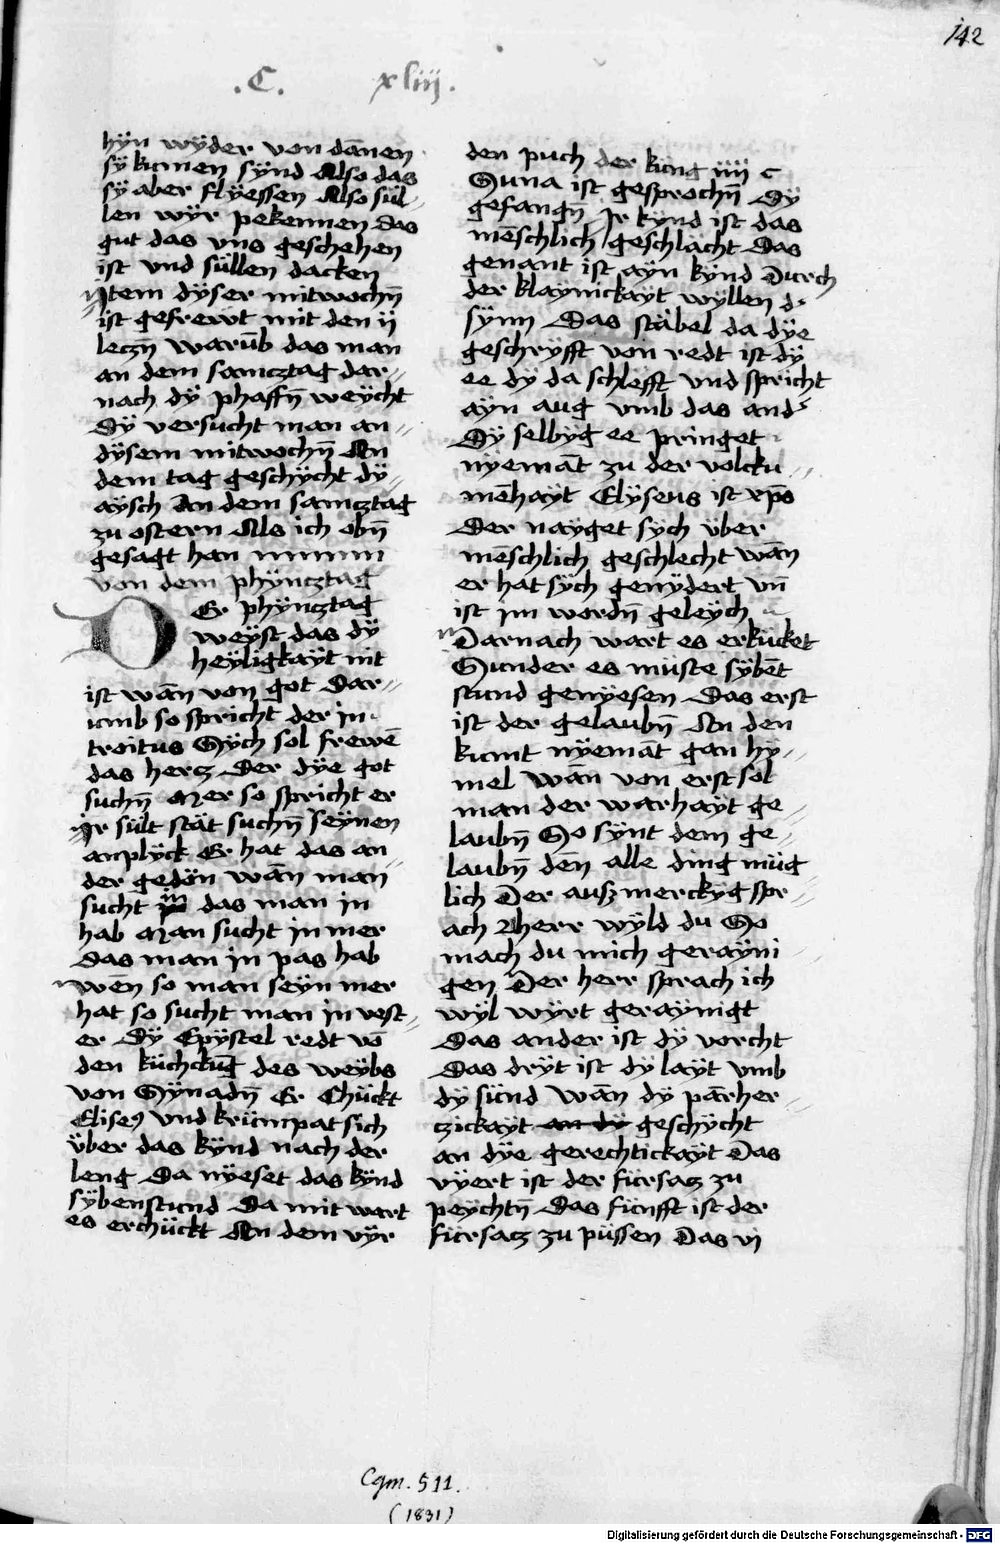 142
.C. xliij.
hÿn wÿder von dānen
sÿ kumen sÿnd Also das
sÿ aber flÿessen Also sül-
len wÿr pekennen das
gut das vns geschehen
ist vnd süllen dacken
Jtem dÿser mitwochn̄
ist gefrewt mit den ij
leczn̄ warūb das man
an dem samcztag dar-
nach dÿ phaffn̄ weÿcht
Dÿ versucht man an-
dÿsem mitwochn̄ An
dem tag geschÿcht dÿ
aÿsch An dem samcztag
zu ostern Als ich obn̄
gesagt han
von dem phÿncztag
DEr phÿncztag
weÿst das dÿ
heÿligkaÿt nit
ist wān von got Dar-
umb so spricht der in-
troitus Sÿch sol frewē
das hercz Der dÿe got
suchn̄ Mer so spricht er
Jr sült stät suchn̄ seÿnen
anplÿck Er hat das an-
der gedön wān man
sucht in das man in
hab Man sucht in mer
das man in pas hab
wēn so man seÿn mer
hat so sucht man in vest-
er Dÿ Epÿstel redt vō
den küchckūg des weÿbs
von Sÿnadn̄ Er Chückt
Eliseꝰ vnd krümpat sich
über das kÿnd nach der
leng Da nÿeset das kÿnd
sÿbenstund Da mit wart
es erchückt An dem vÿr
den puch der kung iiij c
Suna ist gesprochn̄ Dÿ
gefangn̄ Jr kÿnd ist das
mēschlich geschlācht Das
genant ist aÿn kÿnd Durch
der klaÿnickaÿt wÿllen dˢ
sÿnn Das stäbel da dÿe
geschrÿfft von redt ist dÿ
ee dÿ da schlefft vnd spricht
aÿn aug vmb das andˢ
Dÿ selbÿg ee pringet
nÿemāt zu der volcku-
mēhaÿt Elÿseus ist xp̄s
Der naÿget sÿch vber
mēschlich geschlecht wān
er hat sÿch genÿdert vn̄
ist jm wordn̄ geleÿch
Darnach wart es erkücket
Sunder es muste sÿbēt
stund genÿesen Das erst
ist der gelaubn̄ An den
kumt nÿemāt gan hÿ-
mel wān von erst sol
man der warhaÿt ge-
laubn̄ So sÿnt dem ge-
laubn̄ dēn alle ding müg
lich Der außmerckÿg spr-
ach herr wÿld du So
mach du mich geraÿni
gen Der herr sprach ich
wÿl wÿrt geraÿnigt
Das ander ist dÿ vorcht
Das drÿt ist dÿ laÿt vmb
dÿ sünd wān dÿ pārher-
czickaÿt an dÿ geschÿcht
an dÿe gerechtickaÿt Das
vÿert ist der fürsacz zu
peÿchtn̄ Das fünfft ist der
fürsacz zu püssen Das vi
Cgm. 511.
(1831)
Digitalisierung gefördert durch die Deutsche Forschungsgemeinschaft - DFG